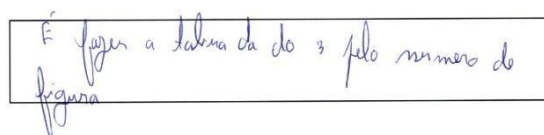 É fazer a tabua da do 3 pelo numero de
figura